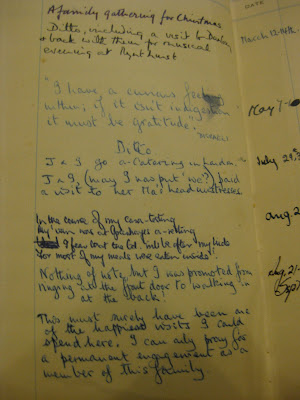 A family gathering for Christmas
DATE
Ditto, including a visit to
& back with them for musical
evening at Pynt hurst
March 12-14th.
"I have a curious feel
within; if it isn't indigestion
it must be gratitude".
DISRAELI
May 7-
Ditto
J & J go a-Catering in
J & J, (may I has put 'we'?) paid
a visit to her Ma's headmistresses.
July 29th
In the course of my
my van was at a-rotting
I fear lest the be after my
For most of my meals were eaten
aug. 2
Nothing of note, but I was promoted from
ringing at the front door to walking in
at the back!
aug. 21-
Sept
This must surely have been one
of the happiest visits I could
spend here. I can only pray for
a permanent engagement as a
member of this family